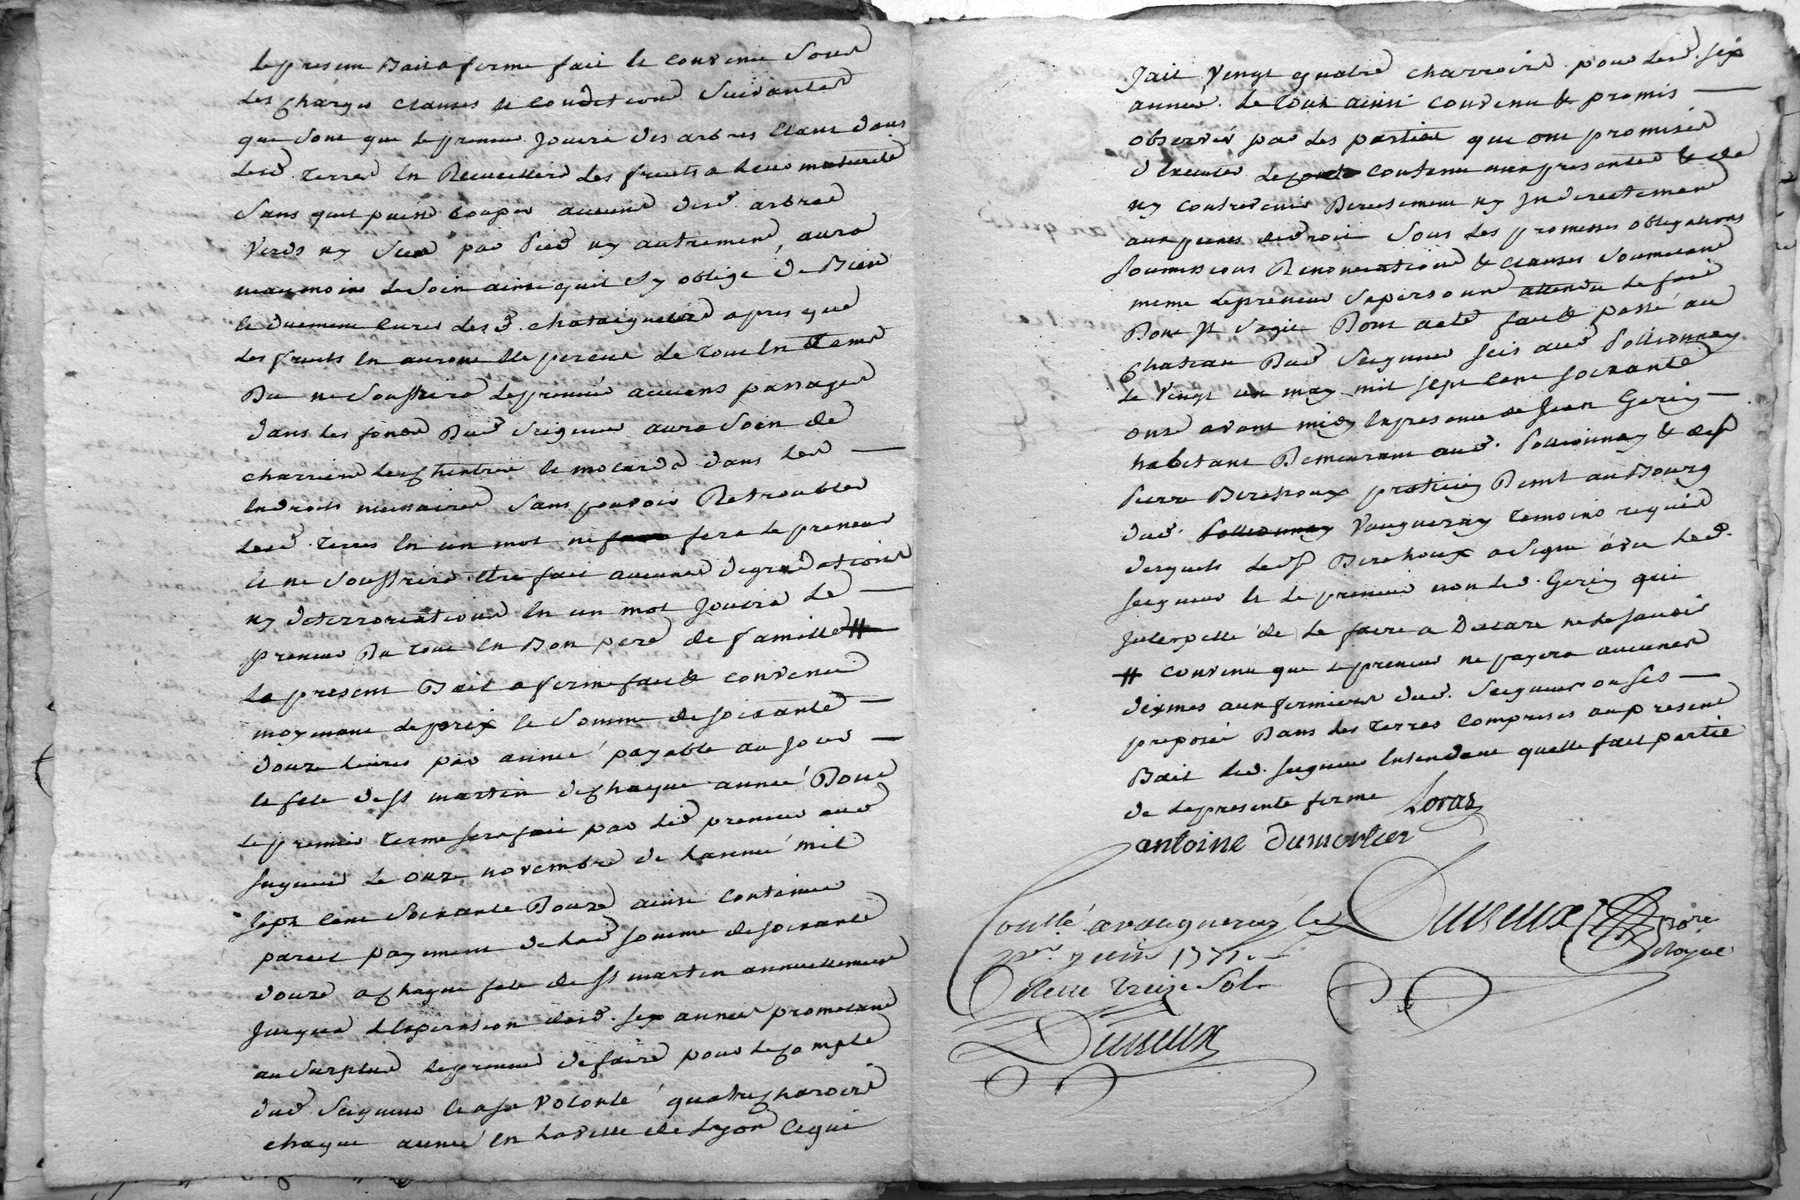 Le present Bail a ferme fait & convenu sous
les charges clauses & conditions suivantes
que sont que le preneur jouira des arbres etant dans
lesd. terres en Recueillira les fruits a leur maturité
sans quil puisse couper aucuns desd. arbres
verds ny secs par pied ny autrement, aura
neanmoins le soin ainsi quil s'y oblige de Bien
& duement curer lesd. chataigniers apres que
les fruits en auront été perçeu le tout en tems
Du ne souffrira le preneur aucuns passages
dans les fonds Dud. Seigneur aura soin de
charrier les cheintres & mocards dans les
Endroits necessaires sans pouvoir Retroubler
lesd. terres en un mot ne fera le preneur
& ne souffrira etre fait aucunes degradations
ny deterroriations en un mot jouira le
preneur Du tout en Bon pere de famille #
Le present Bail a ferme fait & convenu
moyenant le prix & somme de soixante
douze livres par année payable au jour
& fete de st martin de chaque année Dont
le premier terme sera fait par led. preneur aud.
seigneur le onze novembre de l'année mil
sept cent soixante Douze ainsi continuer
pareil payement de lad. somme de soixante
douze a chaque fete de st martin annuellement
jusqua l'Expiration desd. six années promettant
au surplus le preneur de faire pour le compte
dud. seigneur & a sa volonté quatre charois
chaque année en la ville de Lyon Ce qui
fait vingt quatre charrois pour lesd. six
années. Le tout ainsi convenu & promis
observer par les parties que ont promises
d'Executer le contenu aux presentes & de
ny contrevenir Directement ny Indirectement
aux peines de droit sous les promesses obligations
soumissions Renonciations & clauses soumettant
meme le preneur sa personne attendu le fait
Dont Il s'agit Dont acte fait & passé au
Chateau Dud. Seigneur sis aud. Pollionnay
le vingt un may mil sept cent soixante
onze avant midy En presence de Jean Gerin
habitant Demeurant aud. Pollionnay & de sr
Pierre Berthoux praticien Demt au Bourg
dud. Pollionnay Vaugneray temoins requis
desquels led. sr Berthoux a signé avec led.
seigneur & le preneur non led. Gerin qui
Interpellé de le faire a Declaré ne le savoir
# convenu que le preneur ne payera aucunes
dixmes aux fermiers dud. Seigneur ou ses
preposés Dans les terres comprises au present
Bail led. seigneur Entendant quelle fait partie
de la presente ferme Loras
antoine dumortier
Conllé a vaugneray le
juin 1771.
Reçu treize sols